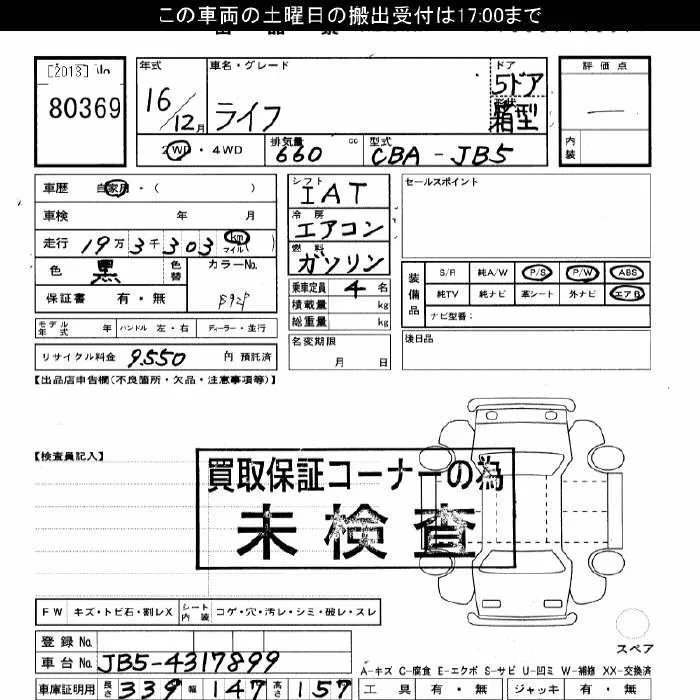 この車両の土曜日の搬出受付は17:00まで
[2013] No
80369
年式
16/12月
車名・グレード
ライフ
ドア
5ドア
形状
箱型
評価点
—
内装
2WD・4WD
排気量
660 cc
型式
CBA-JB5
車歴 自家用・( )
車検 年 月
走行 19万3千303 km マイル( )
色 黒 色替 カラーNo.
保証書 有・無
モデル年式 年 ハンドル 左・右 ディーラー・並行
リサイクル料金 9,550 円 預託済
シフト
IAT
冷房
エアコン
燃料
ガソリン
乗車定員 4 名
積載量 kg
総重量 kg
名変期限
月 日
セールスポイント
装備品
S/R 純A/W P/S P/W ABS
純TV 純ナビ 革シート 外ナビ エアB
ナビ型番:
後日品
【出品店申告欄(不良箇所・欠品・注意事項等)】
【検査員記入】
買取保証コーナーの為
未検査
FW キズ・トビ石・割レX シート内装 コゲ・穴・汚レ・シミ・破レ・スレ
登録No.
車台No. JB5-4317899
車庫証明用 長さ 339 幅 147 高さ 157
スペア
A-キズ C-腐食 E-エクボ S-サビ U-凹ミ W-補修 XX-交換済
工具 有・無 ジャッキ 有・無